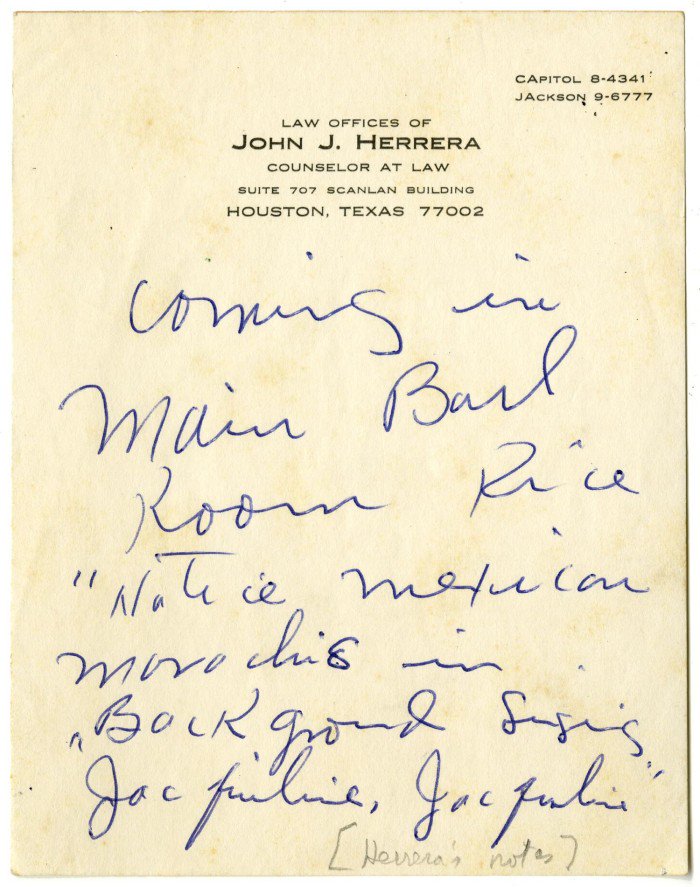 CAPITOL 8-4341
JACKSON 9-6777
LAW OFFICES OF
JOHN J. HERRERA
COUNSELOR AT LAW
SUITE 707 SCANLAN BUILDING
HOUSTON, TEXAS 77002
coming in
Main Ball
Room Rice
"Notice mexican
marachis in
"Back ground Sising
Jacquline, Jacquline"
[Herrera's notes]